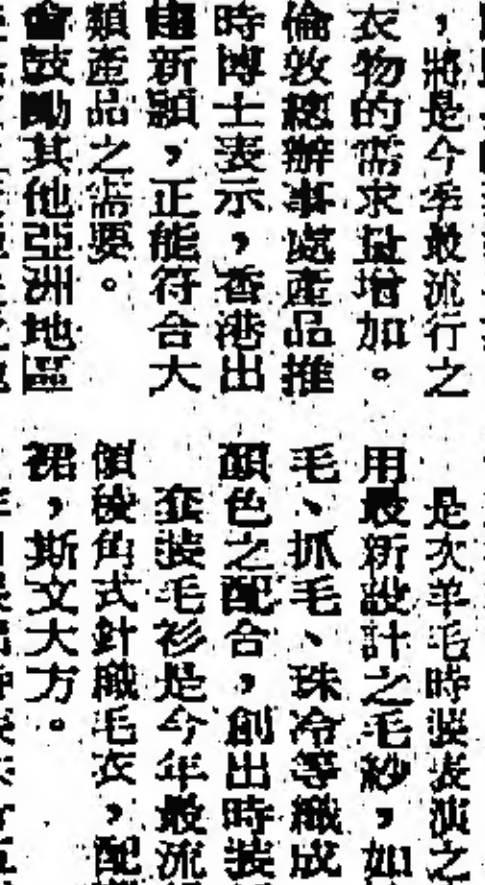 ，將是今季最流行之
衣物的需求量增加。
倫敦總辦事處產品推
時博士表示，香港出
新穎，正能符合大
類產品之需要。
會鼓勵其他亞洲地區
是次羊毛時裝表演之
用最新設計之毛紗，如
毛、抓毛、珠冷等織成
顏色之配合，創出時裝
套裝毛衫是今年最流
領稜角式針織毛衣，配
裙，斯文大方。